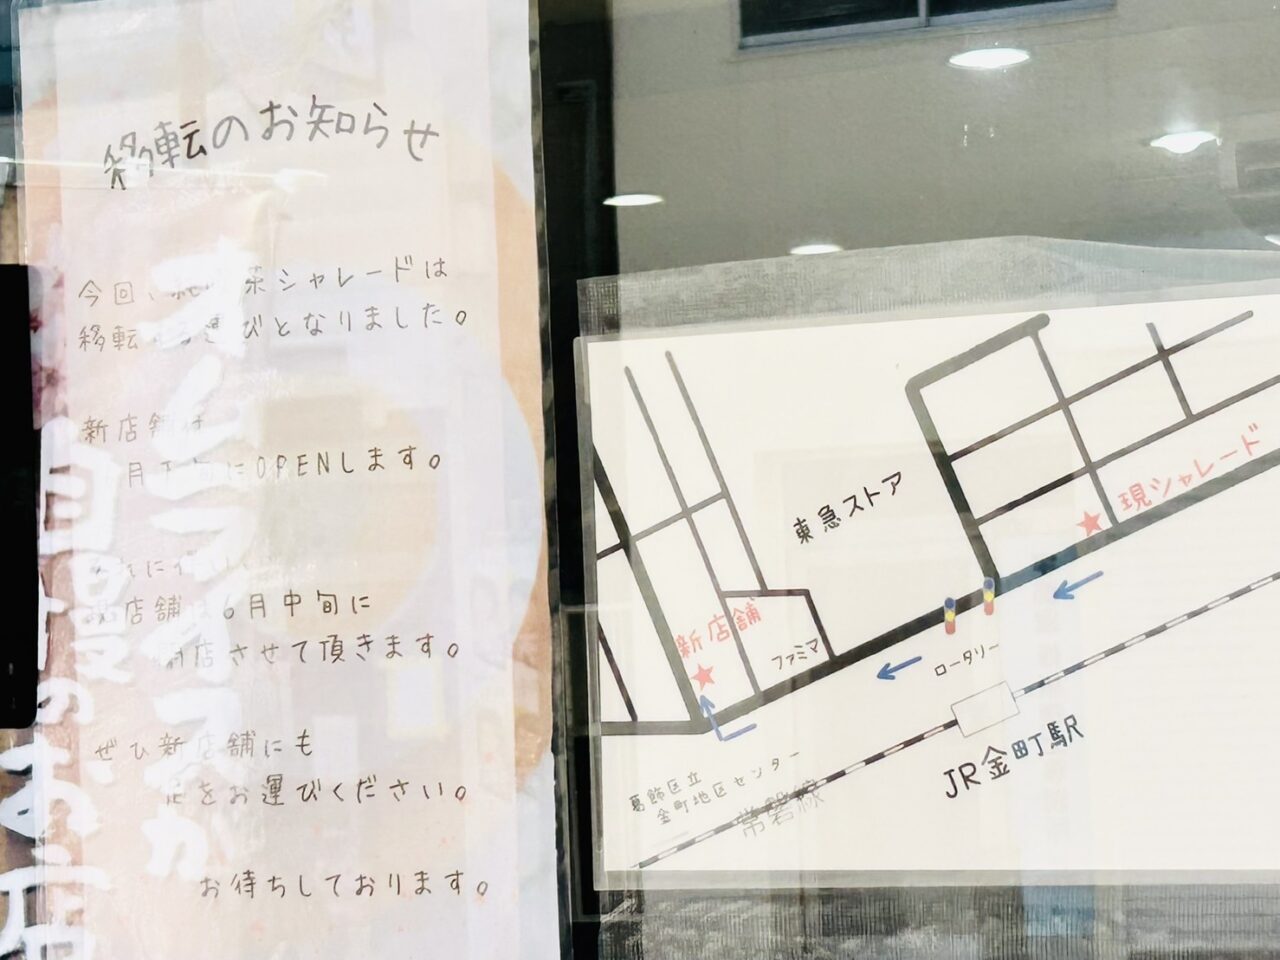 移転のお知らせ
今回、純喫茶シャレードは
移転する運びとなりました。
新店舗は
月下旬にOPENします。
それに伴い、
現店舗は6月中旬に
閉店させて頂きます。
ぜひ新店舗にも
足をお運びください。
お待ちしております。
オムライスが
自慢のお店
東急ストア
現シャレード
新店舗
ファミマ
ロータリー
JR金町駅
葛飾区立
金町地区センター
常磐線